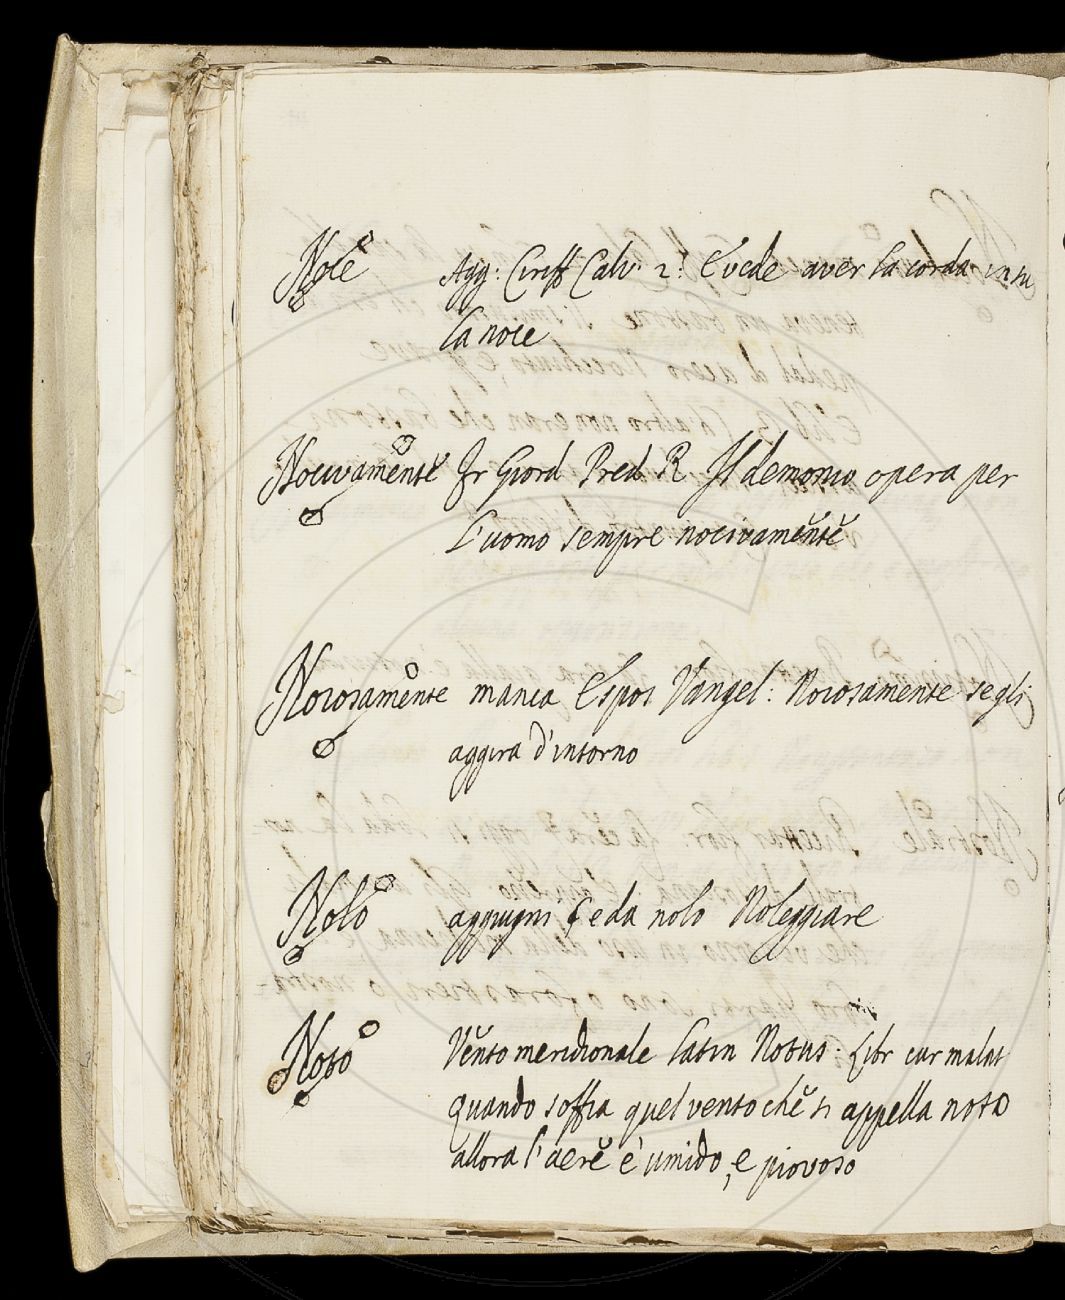 Noce Agg: Ciriff Calv. 2. E vede aver la corda in su
la noce
Nocivamente Fr Giord Pred R Il demonio opera per
l'uomo sempre nocivamente
Noiosamente manca Espos Vangel: Noiosamente se gli
aggira d'intorno
Nolo aggiugni e da nolo Noleggiare
Noto Vento meridionale latin Notus: Libr cur malat
quando soffia quel vento che si appella noto
allora l'aere è umido, e piovoso